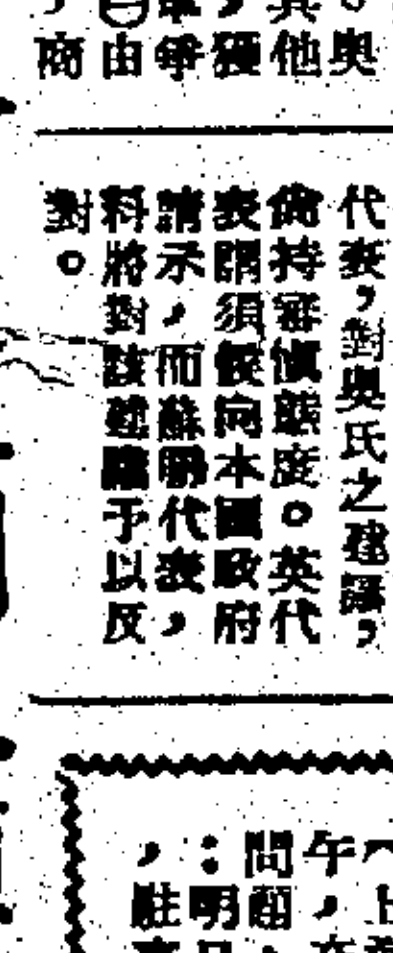 奧
其他
獲
爭
自由
，商
代表，對奧氏之建議，
尙持審愼態度。英代
表謂須候向本國政府
請示，而蘇聯代表，
料將對該建議予以反
對。
午，
問題
：明
，駐